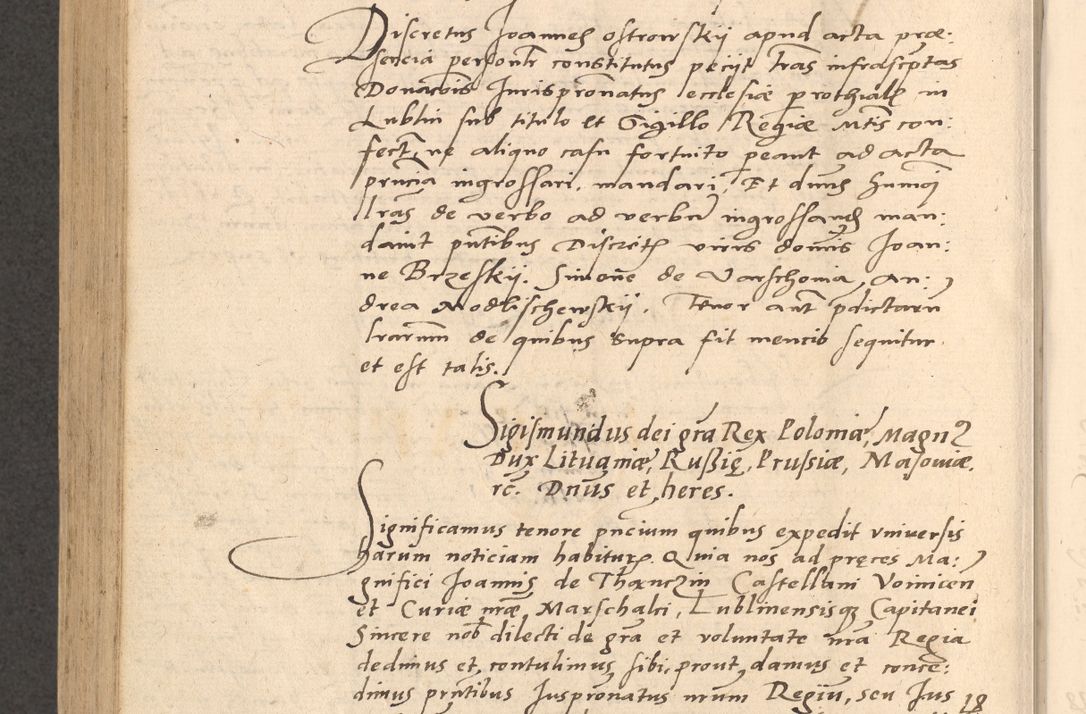 Discretus Joannes ostrowskij apud acta præ:
sencia personlr constitutus pecijt lras infrascptas
Donacois Jurispronatus ecclesiæ prothialis in
Lublin sub titulo et Sigillo Regiæ Mtis con:
fect, ne aliquo casu fortuito peant ad acta
prncia ingrossari, mandari, Et dnus huiusmoi
lras de verbo ad verbu ingrossandas man:
dauit pntibus Discretis viris dominis Joan:
ne Brzeskij. Simone de Varschouia, An:
drea Modlischewskij. Tenor aut pdictaru
lrarum de quibus supra fit mencio sequitur
et est talis.
Sigismundus dei gra Rex Poloniæ, Magnus
Dux Lituaniæ, Rußię, Prussiæ, Masouiæ,
rc. Dnus et heres.
Significamus tenore pncium quibus expedit vniuersis
harum noticiam habituris. Quia nos ad pręces Ma:
gnifici Joannis de Thanczin Castellani Voinicen
et Curiæ nræ Marschalci, Lublinensisque Capitanei
Sincere nob dilecti de gra et voluntate nra Regia
dedimus et, contulimus sibi, prout damus et conce:
dimus prntibus Juspronatus nrum Regiu, seu Jus
18